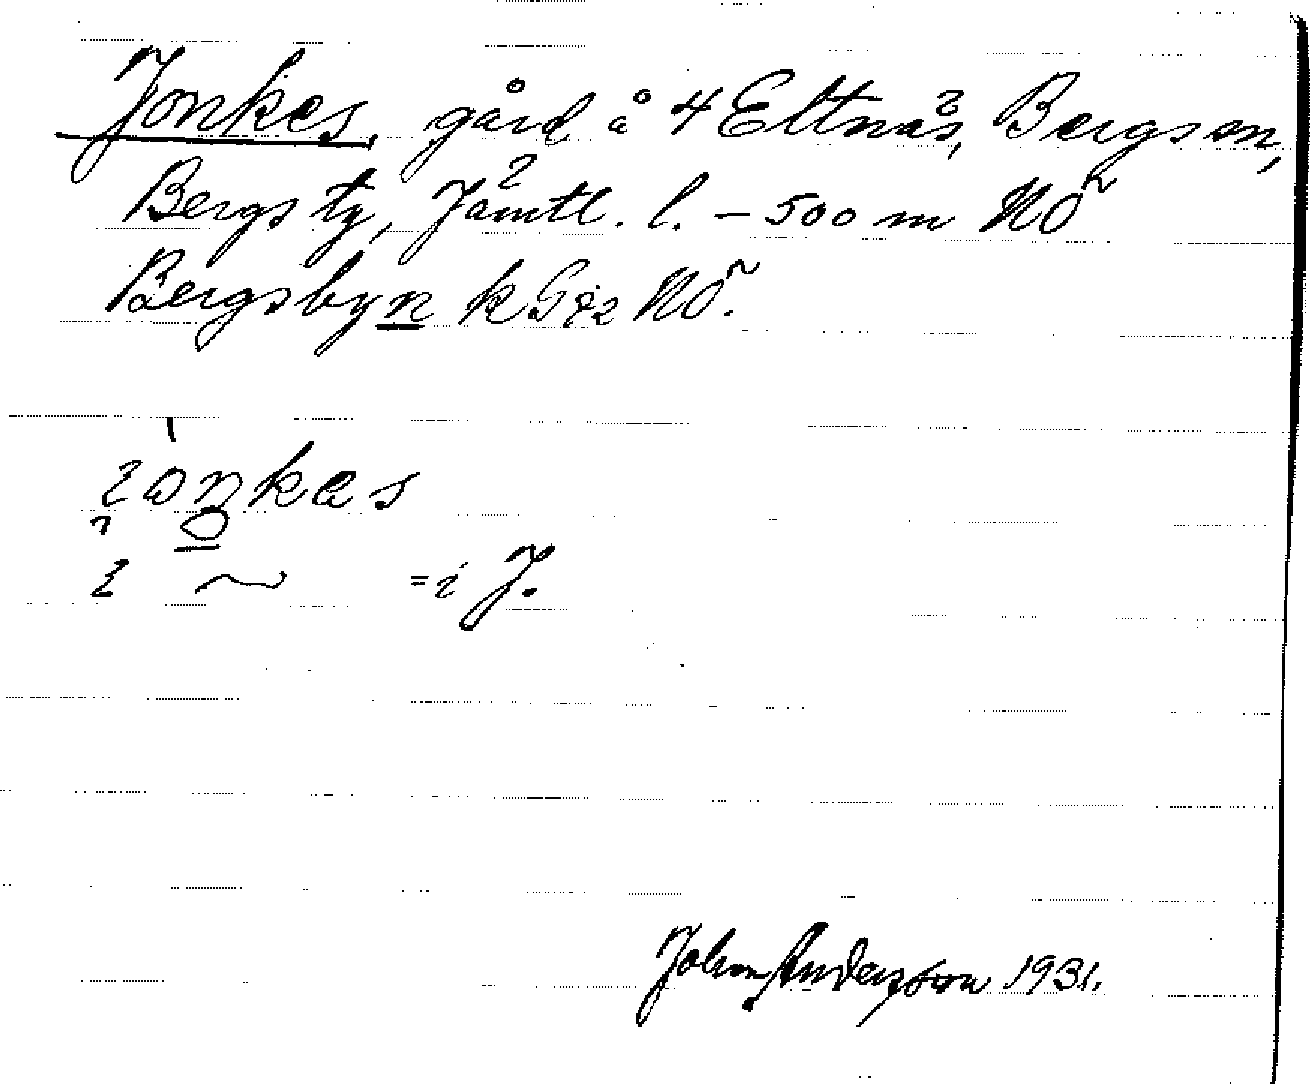 Jonkes, gård å 4 Eltnäs, Bergs sn,
Bergs tg, Jämtl. l. – 500 m NÖ
Bergsbyn k G:a NÖ.
= i J.
Johan Andersson 1931.